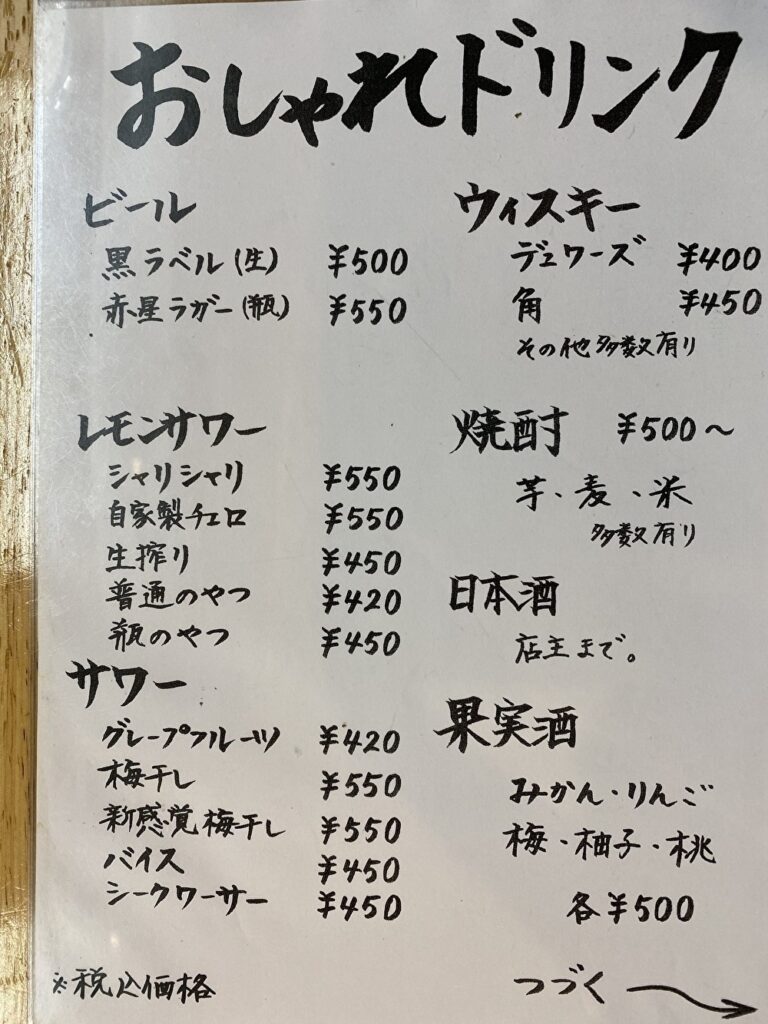 おしゃれドリンク
ビール
黒ラベル(生) ¥500
赤星ラガー(瓶) ¥550
レモンサワー
シャリシャリ ¥550
自家製チェロ ¥550
生搾り ¥450
普通のやつ ¥420
瓶のやつ ¥450
サワー
グレープフルーツ ¥420
梅干し ¥550
新感覚梅干し ¥550
バイス ¥450
シークワーサー ¥450
※税込価格
ウィスキー
デュワーズ ¥400
角 ¥450
その他多数有り
焼酎 ¥500〜
芋・麦・米
多数有り
日本酒
店主まで。
果実酒
みかん・りんご
梅・柚子・桃
各¥500
つづく